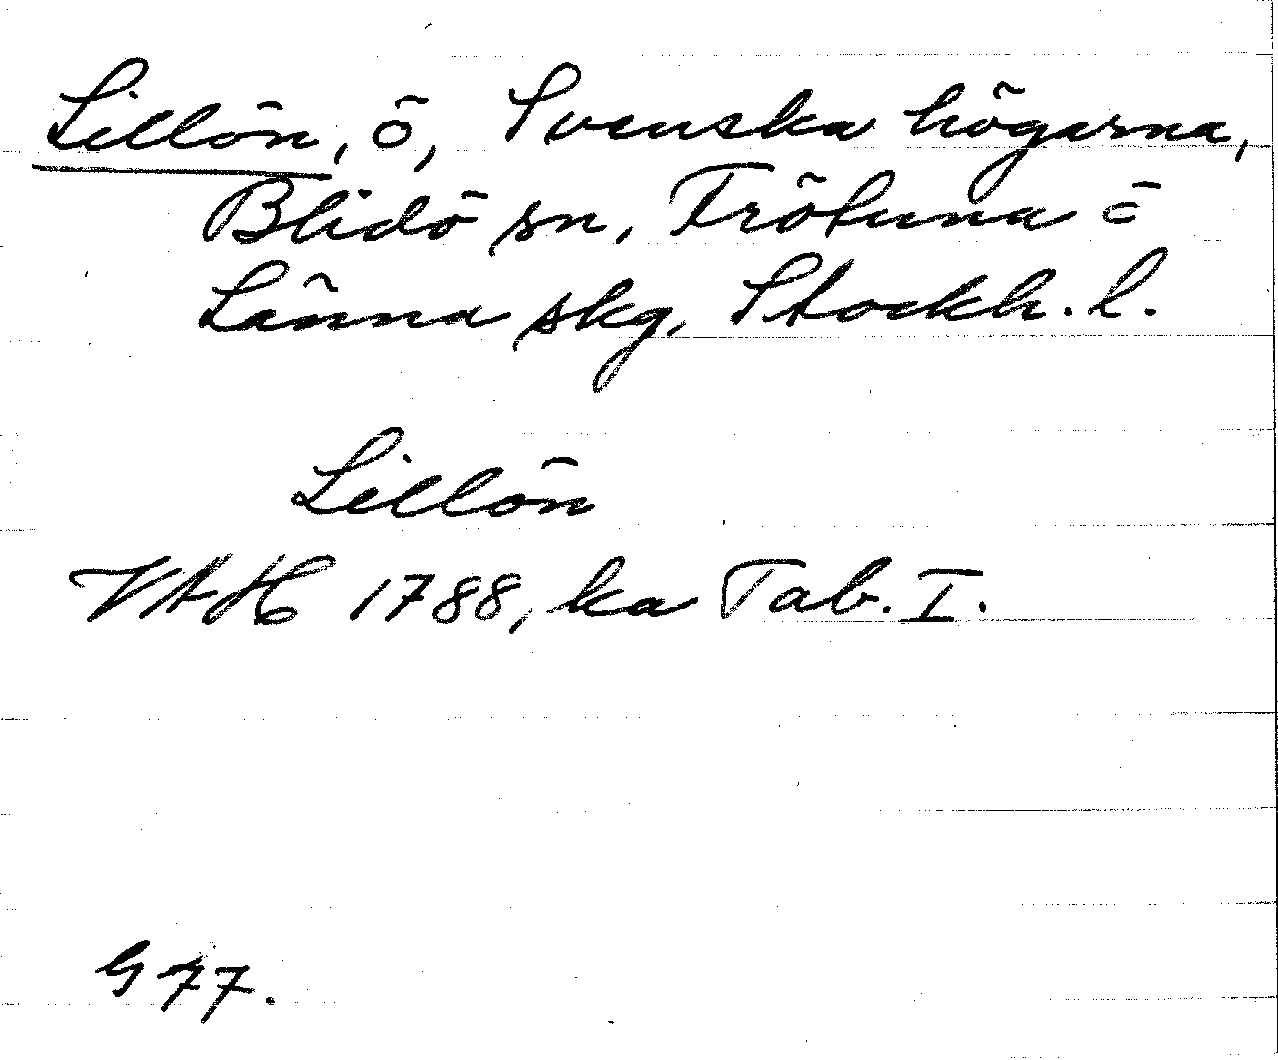 Lillön, ö, Svenska högarna,
Blidö sn, Frötuna o
Länna skg, Stockh. l.
Lillön
VAH 1788, ka Tab. I.
G 77.